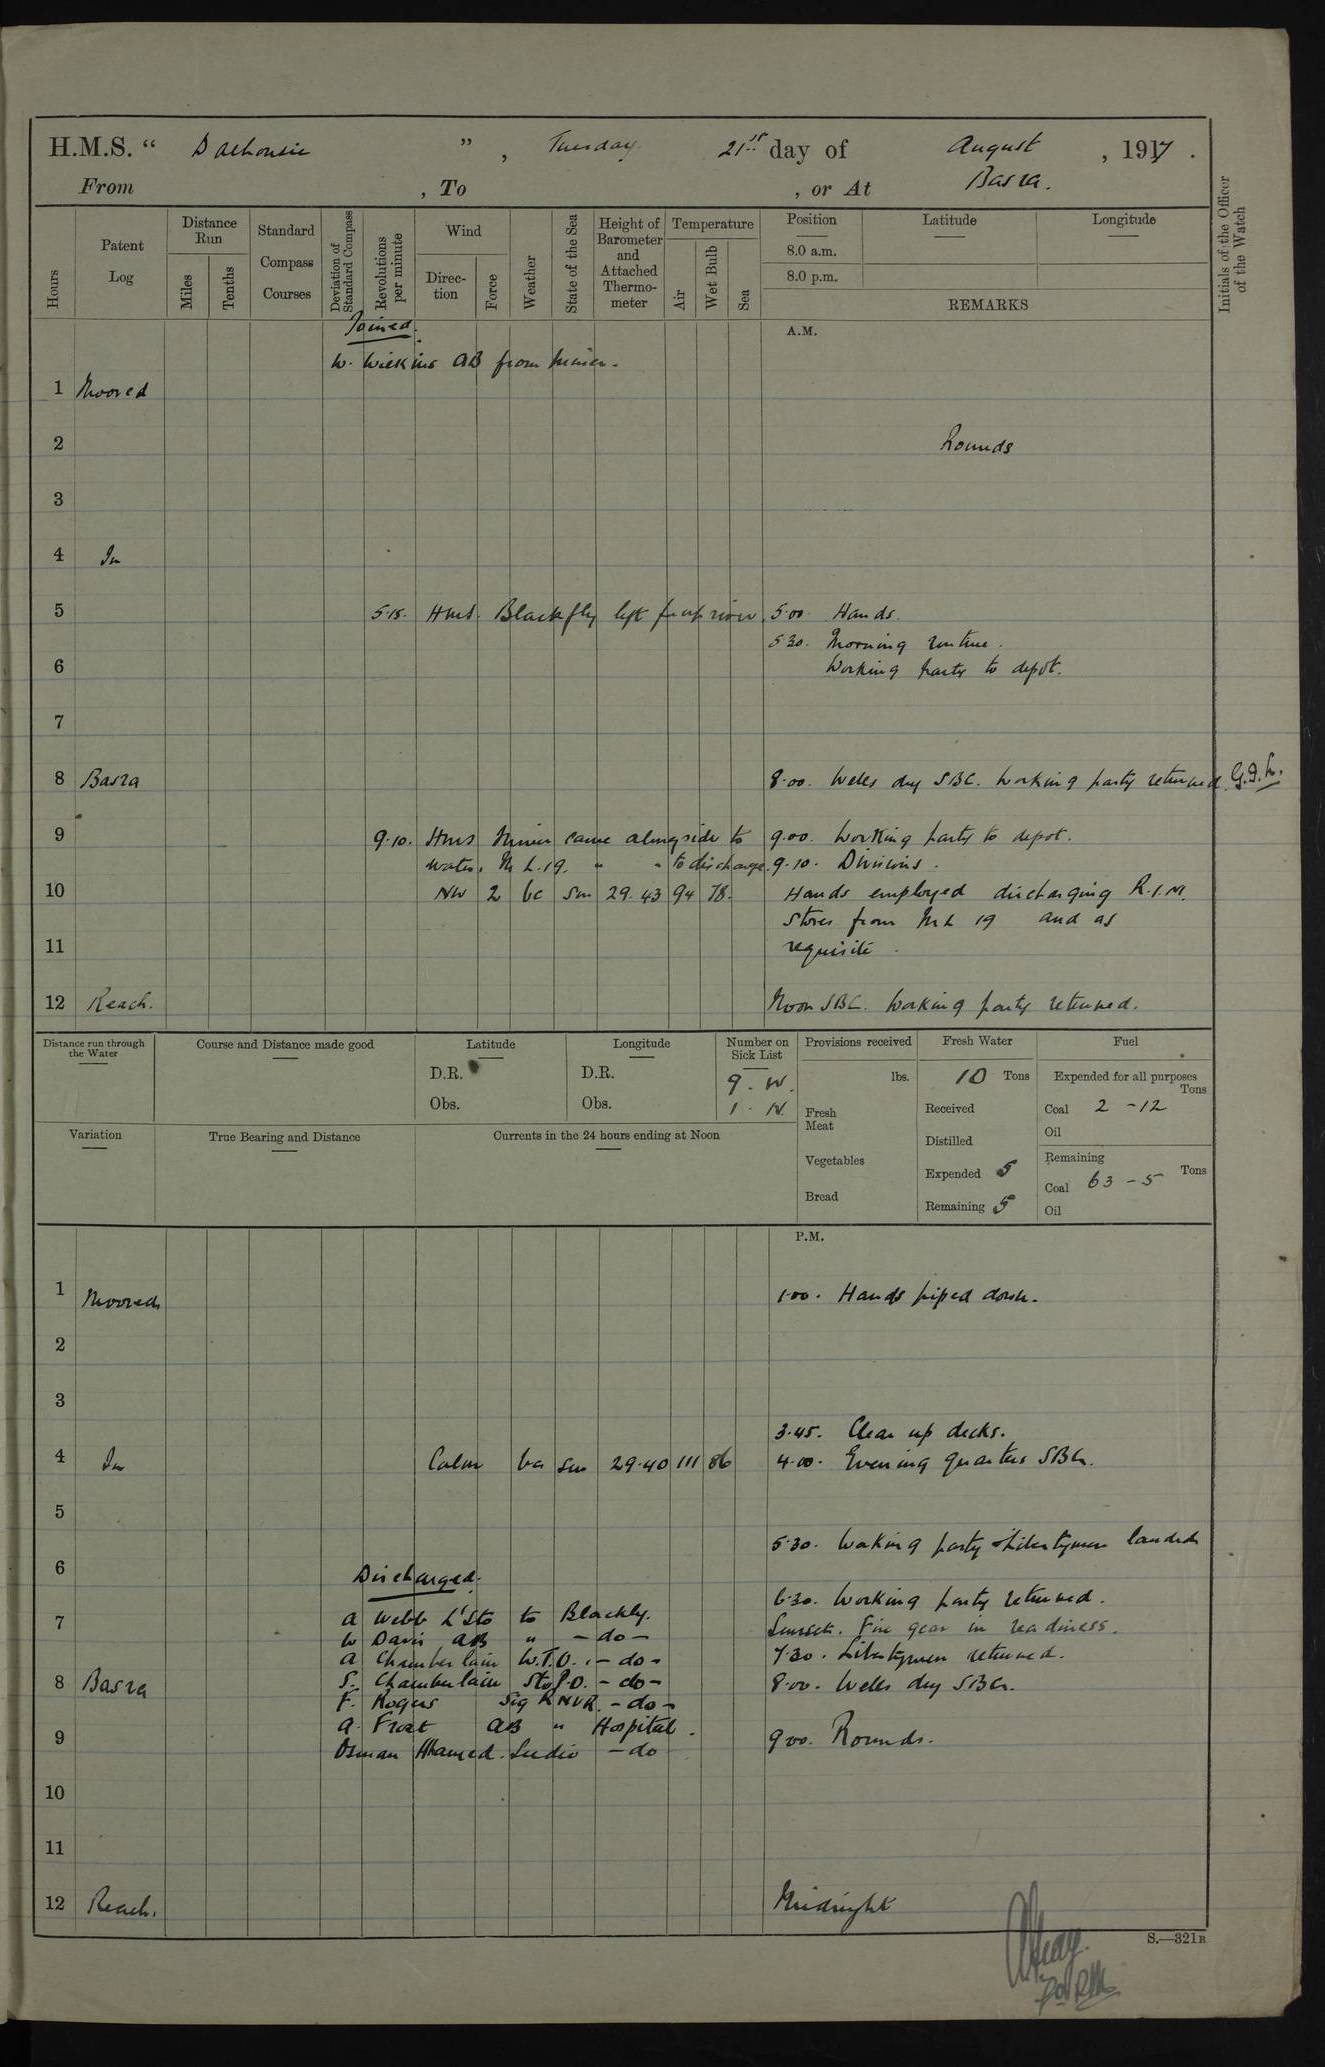 H.M.S. “ Dalhousie ” , Tuesday 21st day of August , 1917 .
From , To , or At Basra.
Hours
Patent Log
Distance Run
Miles
Tenths
Standard Compass Courses
Deviation of Standard Compass
Revolutions per minute
Wind
Direction
Force
Weather
State of the Sea
Height of Barometer and Attached Thermometer
Temperature
Air
Wet Bulb
Sea
Position
8.0 a.m.
8.0 p.m.
Latitude
Longitude
REMARKS
Initials of the Officer of the Watch
Joined.
A.M.
W. Wilkins AB from Miner.
1 Moored
2 Rounds
3
4 In
5 5.15. HMS. Blackfly left for up river. 5.00. Hands.
5.30. Morning routine.
6 Working party to depot.
7
8 Basra 8.00. Wells dry SBC. Working party returned.
9 9.10. HMS Miner came alongside to 9.00. Working party to depot.
water. M L.19. " " to discharge. 9.10. Divisions.
10 NW 2 bc Sm 29.43 94 78. Hands employed discharging R.I.M.
Stores from ML 19 and as
11 requisite.
12 Reach. Noon SBC. Working party returned.
Distance run through the Water
Course and Distance made good
Latitude
D.R.
Obs.
Longitude
D.R.
Obs.
Number on Sick List
9. W.
1. N.
Provisions received
lbs.
Fresh Meat
Vegetables
Bread
Fresh Water
10 Tons
Received
Distilled
Expended 5
Remaining 5
Fuel
Expended for all purposes
Tons
Coal 2-12
Oil
Remaining
Tons
Coal 63-5
Oil
Variation
True Bearing and Distance
Currents in the 24 hours ending at Noon
P.M.
1 Moored 1.00. Hands piped down.
2
3
3.45. Clear up decks.
4 In Calm Sm 29.40 111 86 4.00. Evening quarters SBC.
5
5.30. Working party & Libertymen landed
6
Discharged.
6.30. Working party returned.
7 A Webb L'Sto to Blackfly.
Sunset. Fire gear in readiness.
W Davis AB " - do -
7.30. Libertymen returned.
A Chamberlain W.T.O. - do -
8 Basra S. Chamberlain Sto P.O. - do - 8.00. Wells dry SBC.
F. Rogers Sig RNVR. - do -
A. Frost AB " Hospital.
9 9.00. Rounds.
Osman Ahamed. Seedie - do
10
11
12 Reach. Midnight
S.—321B